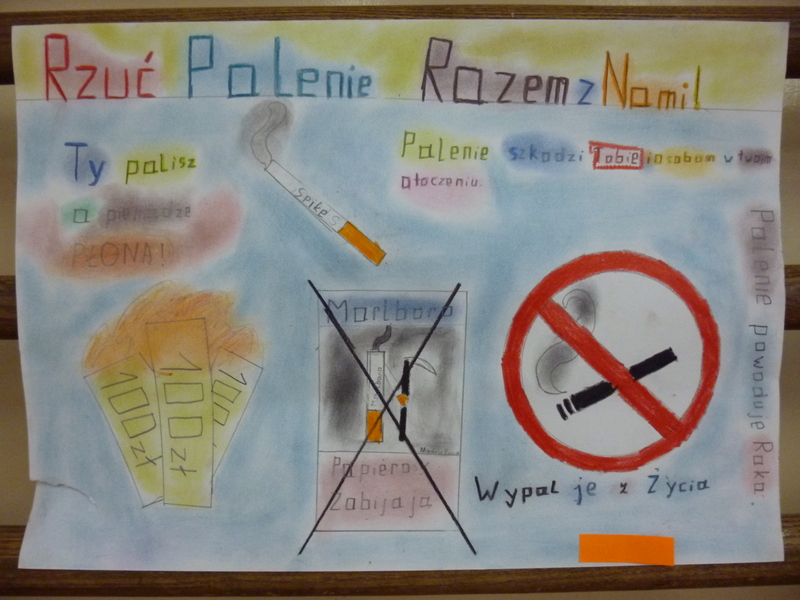 Rzuć Palenie Razem z Namil
Ty palisz
a pieniądze
PŁONĄ!
Spike
Palenie szkodzi Tobie i osobom w twoim
otoczeniu.
Palenie powoduje Raka.
100zł
100zł
100
Marlboro
Papierosy
Zabijają
Wypal je z Życia